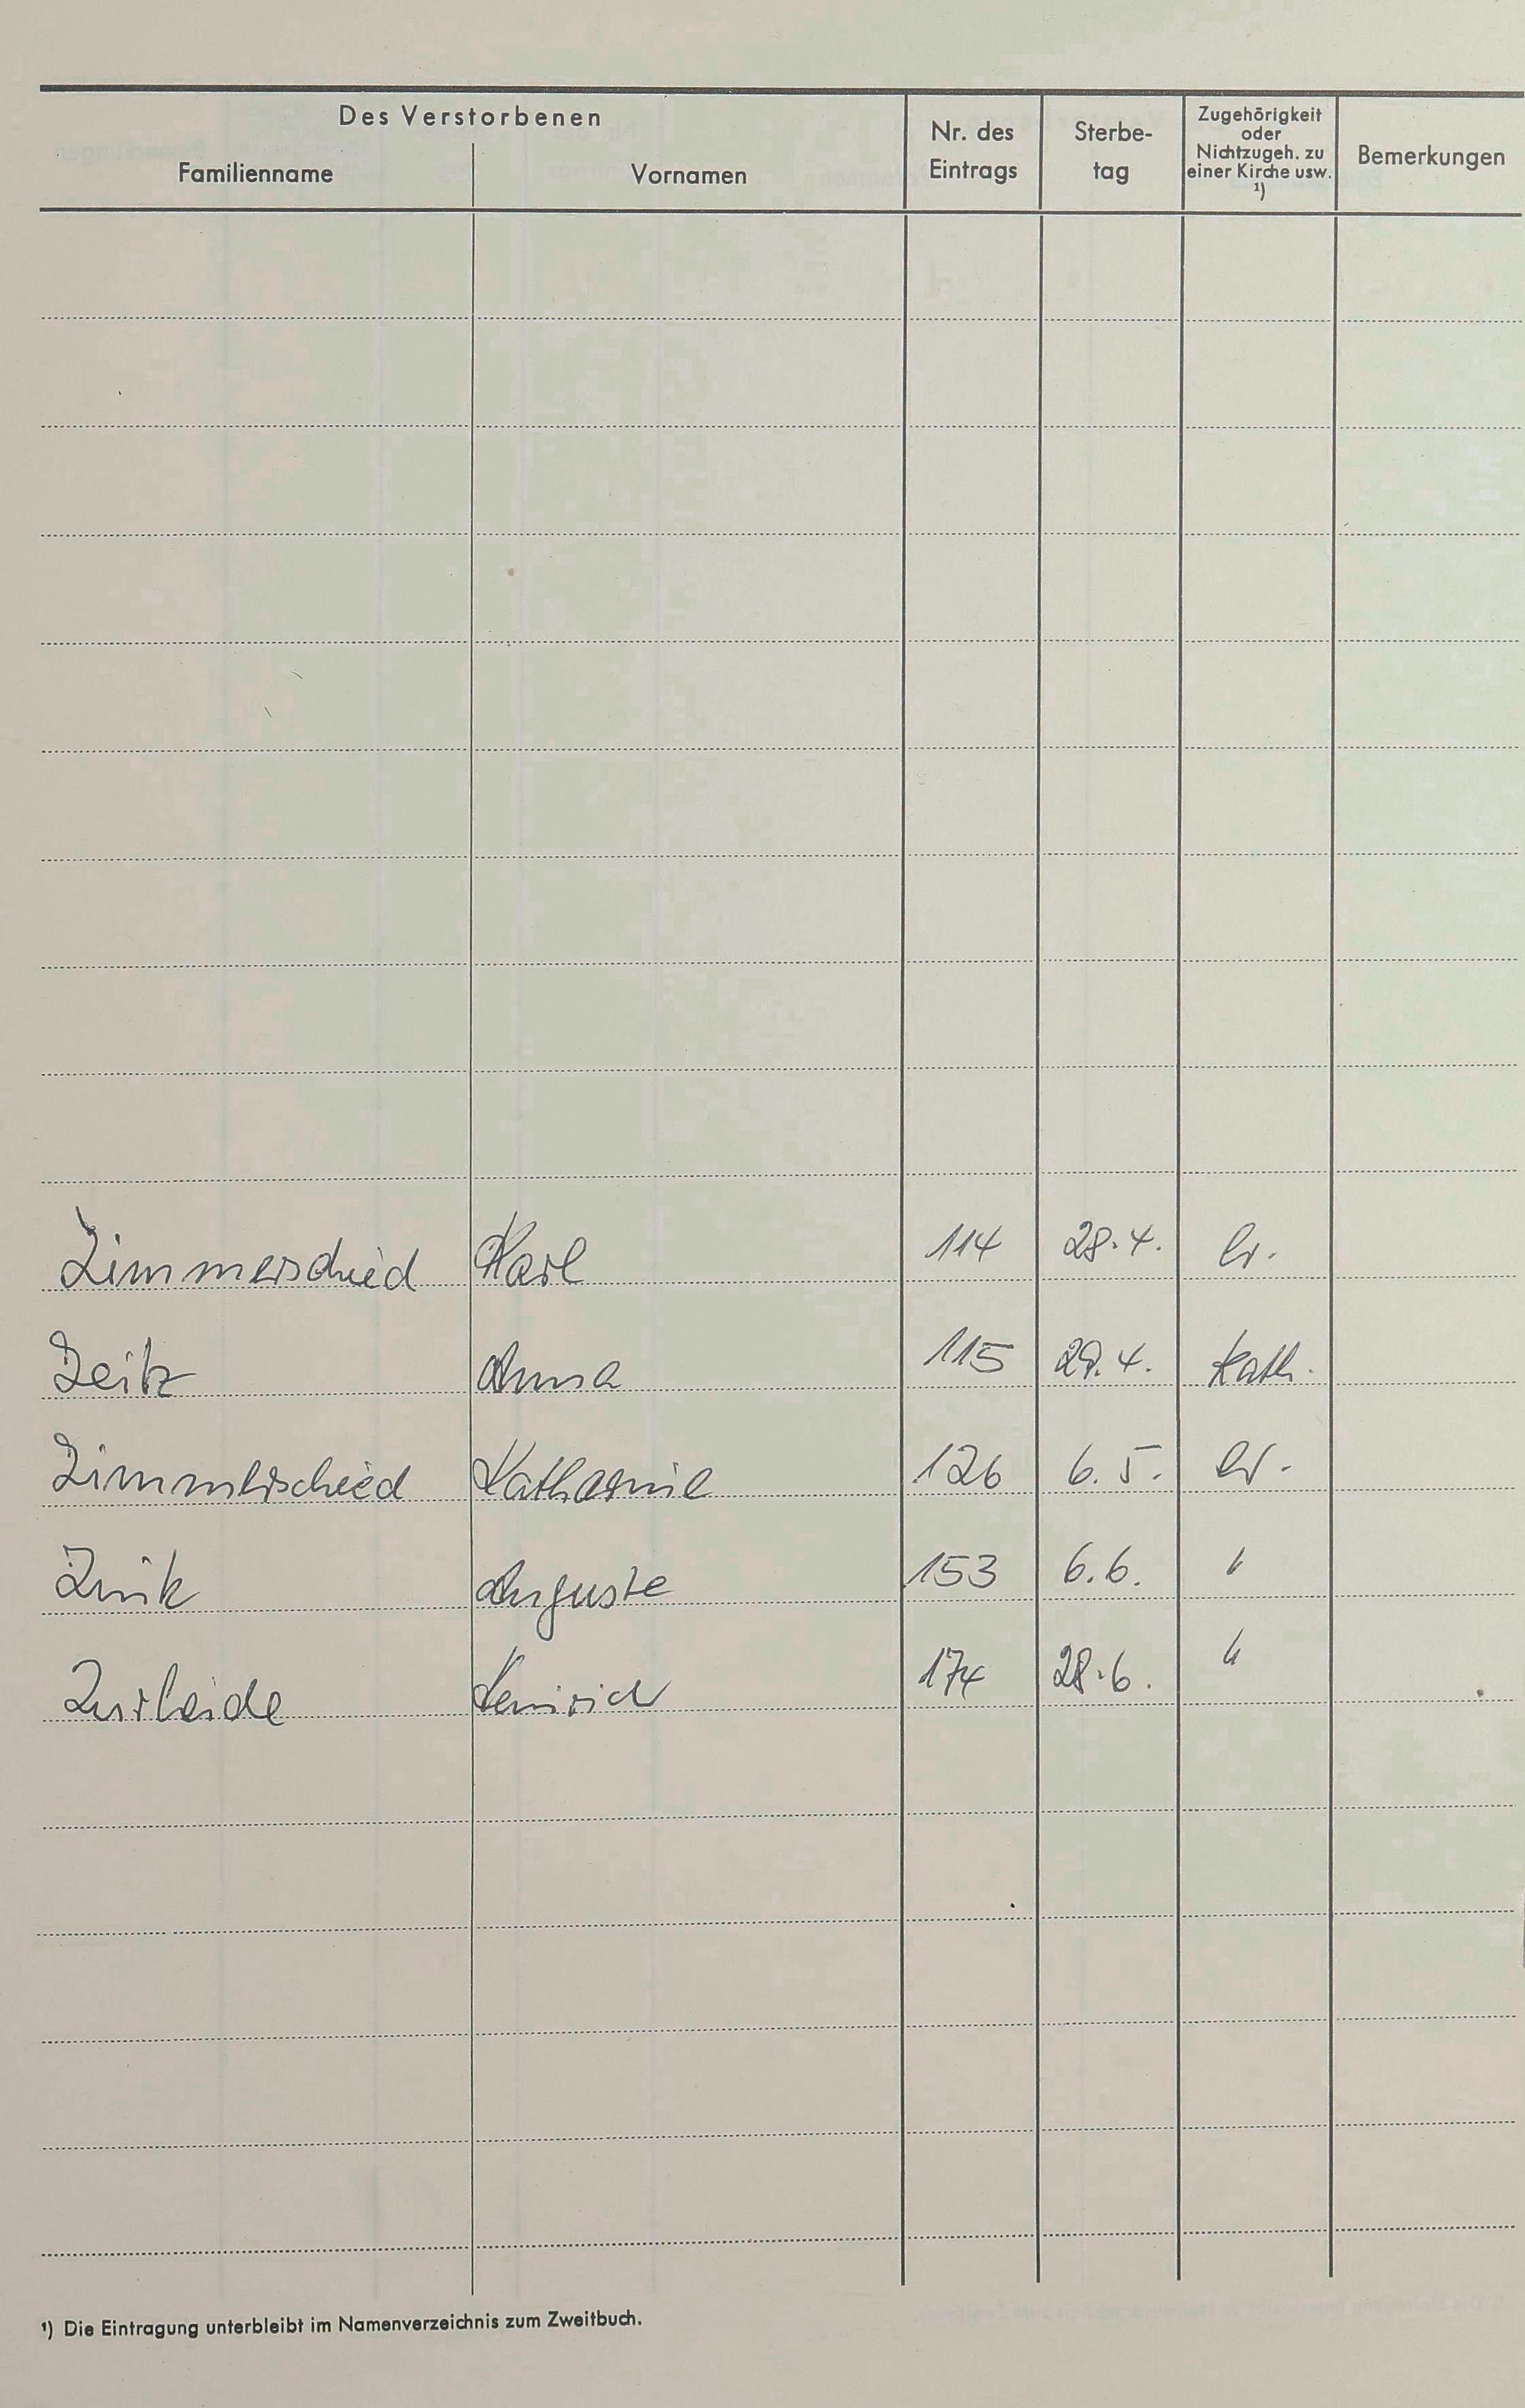 Des Verstorbenen
Familienname Vornamen Nr. des Eintrags Sterbe-tag Zugehörigkeit oder Nichtzugeh. zu einer Kirche usw. ¹) Bemerkungen
Zimmerschied Karl 114 28.4. ev.
Zeitz Anna 115 29.4. kath.
Zimmerschied Katharine 126 6.5. ev.
Zink Auguste 153 6.6. "
Zurheide Heinrich 174 28.6. "
¹) Die Eintragung unterbleibt im Namenverzeichnis zum Zweitbuch.